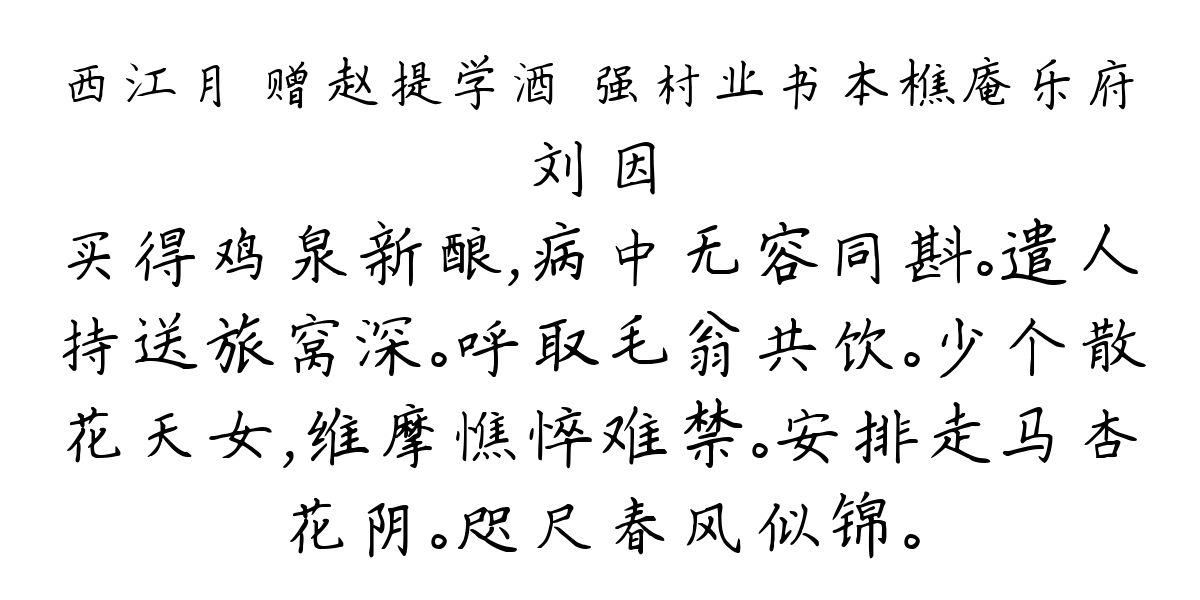 西江月 赠赵提学酒 强村业书本樵庵乐府
刘因
买得鸡泉新酿,病中无容同斟。遣人
持送旅窝深。呼取毛翁共饮。少个散
花天女,维摩憔悴难禁。安排走马杏
花阴。咫尺春风似锦。